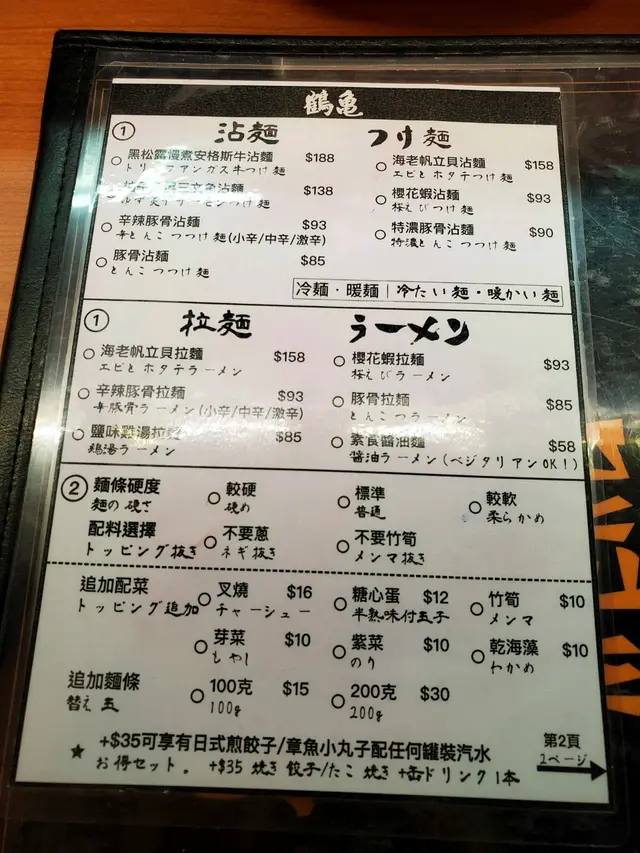 鶴亀
① 沾麵 つけ麵
黑松露慢煮安格斯牛沾麵 $188
トリュフアンガス牛つけ麺
三文魚沾麵 $138
サーモンつけ麺
辛辣豚骨沾麵 $93
辛とんこつつけ麺(小辛/中辛/激辛)
豚骨沾麵 $85
とんこつつけ麺
海老帆立貝沾麵 $158
エビとホタテつけ麺
櫻花蝦沾麵 $93
桜えびつけ麺
特濃豚骨沾麵 $90
特濃とんこつつけ麺
冷麵・暖麵 | 冷たい麺・暖かい麺
① 拉麵 ラーメン
海老帆立貝拉麵 $158
エビとホタテラーメン
辛辣豚骨拉麵 $93
辛豚骨ラーメン(小辛/中辛/激辛)
鹽味雞湯拉麵 $85
鶏湯ラーメン
櫻花蝦拉麵 $93
桜えびラーメン
豚骨拉麵 $85
とんこつラーメン
素食醬油麵 $58
醬油ラーメン(ベジタリアンOK!)
② 麵條硬度 較硬 標準 較軟
麺の硬さ 硬め 普通 柔らかめ
配料選擇 不要蔥 不要竹筍
トッピング抜き ネギ抜き メンマ抜き
追加配菜 叉燒 $16 糖心蛋 $12 竹筍 $10
トッピング追加 チャーシュー 半熟味付玉子 メンマ
芽菜 $10 紫菜 $10 乾海藻 $10
もやし のり わかめ
追加麵條 100克 $15 200克 $30
替え玉 100g 200g
★ +$35可享有日式煎餃子/章魚小丸子配任何罐裝汽水
お得セット。 +$35 焼き餃子/たこ焼き+缶ドリンク1本
第2頁
2ページ